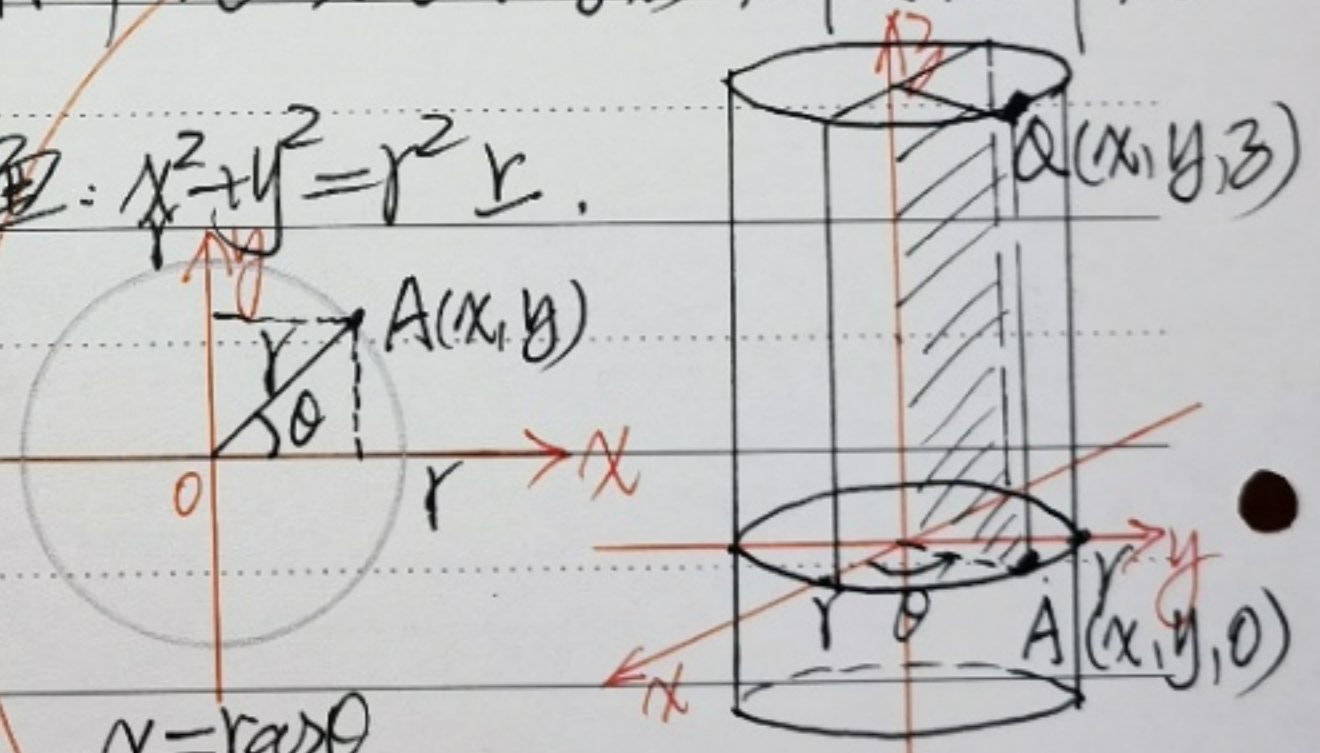 : x²+y²=r² r.
r
y
A(x,y)
r
θ
0
x
r
x=rcosθ
z
Q(x,y,z)
y
r
r
θ
A(x,y,0)
x